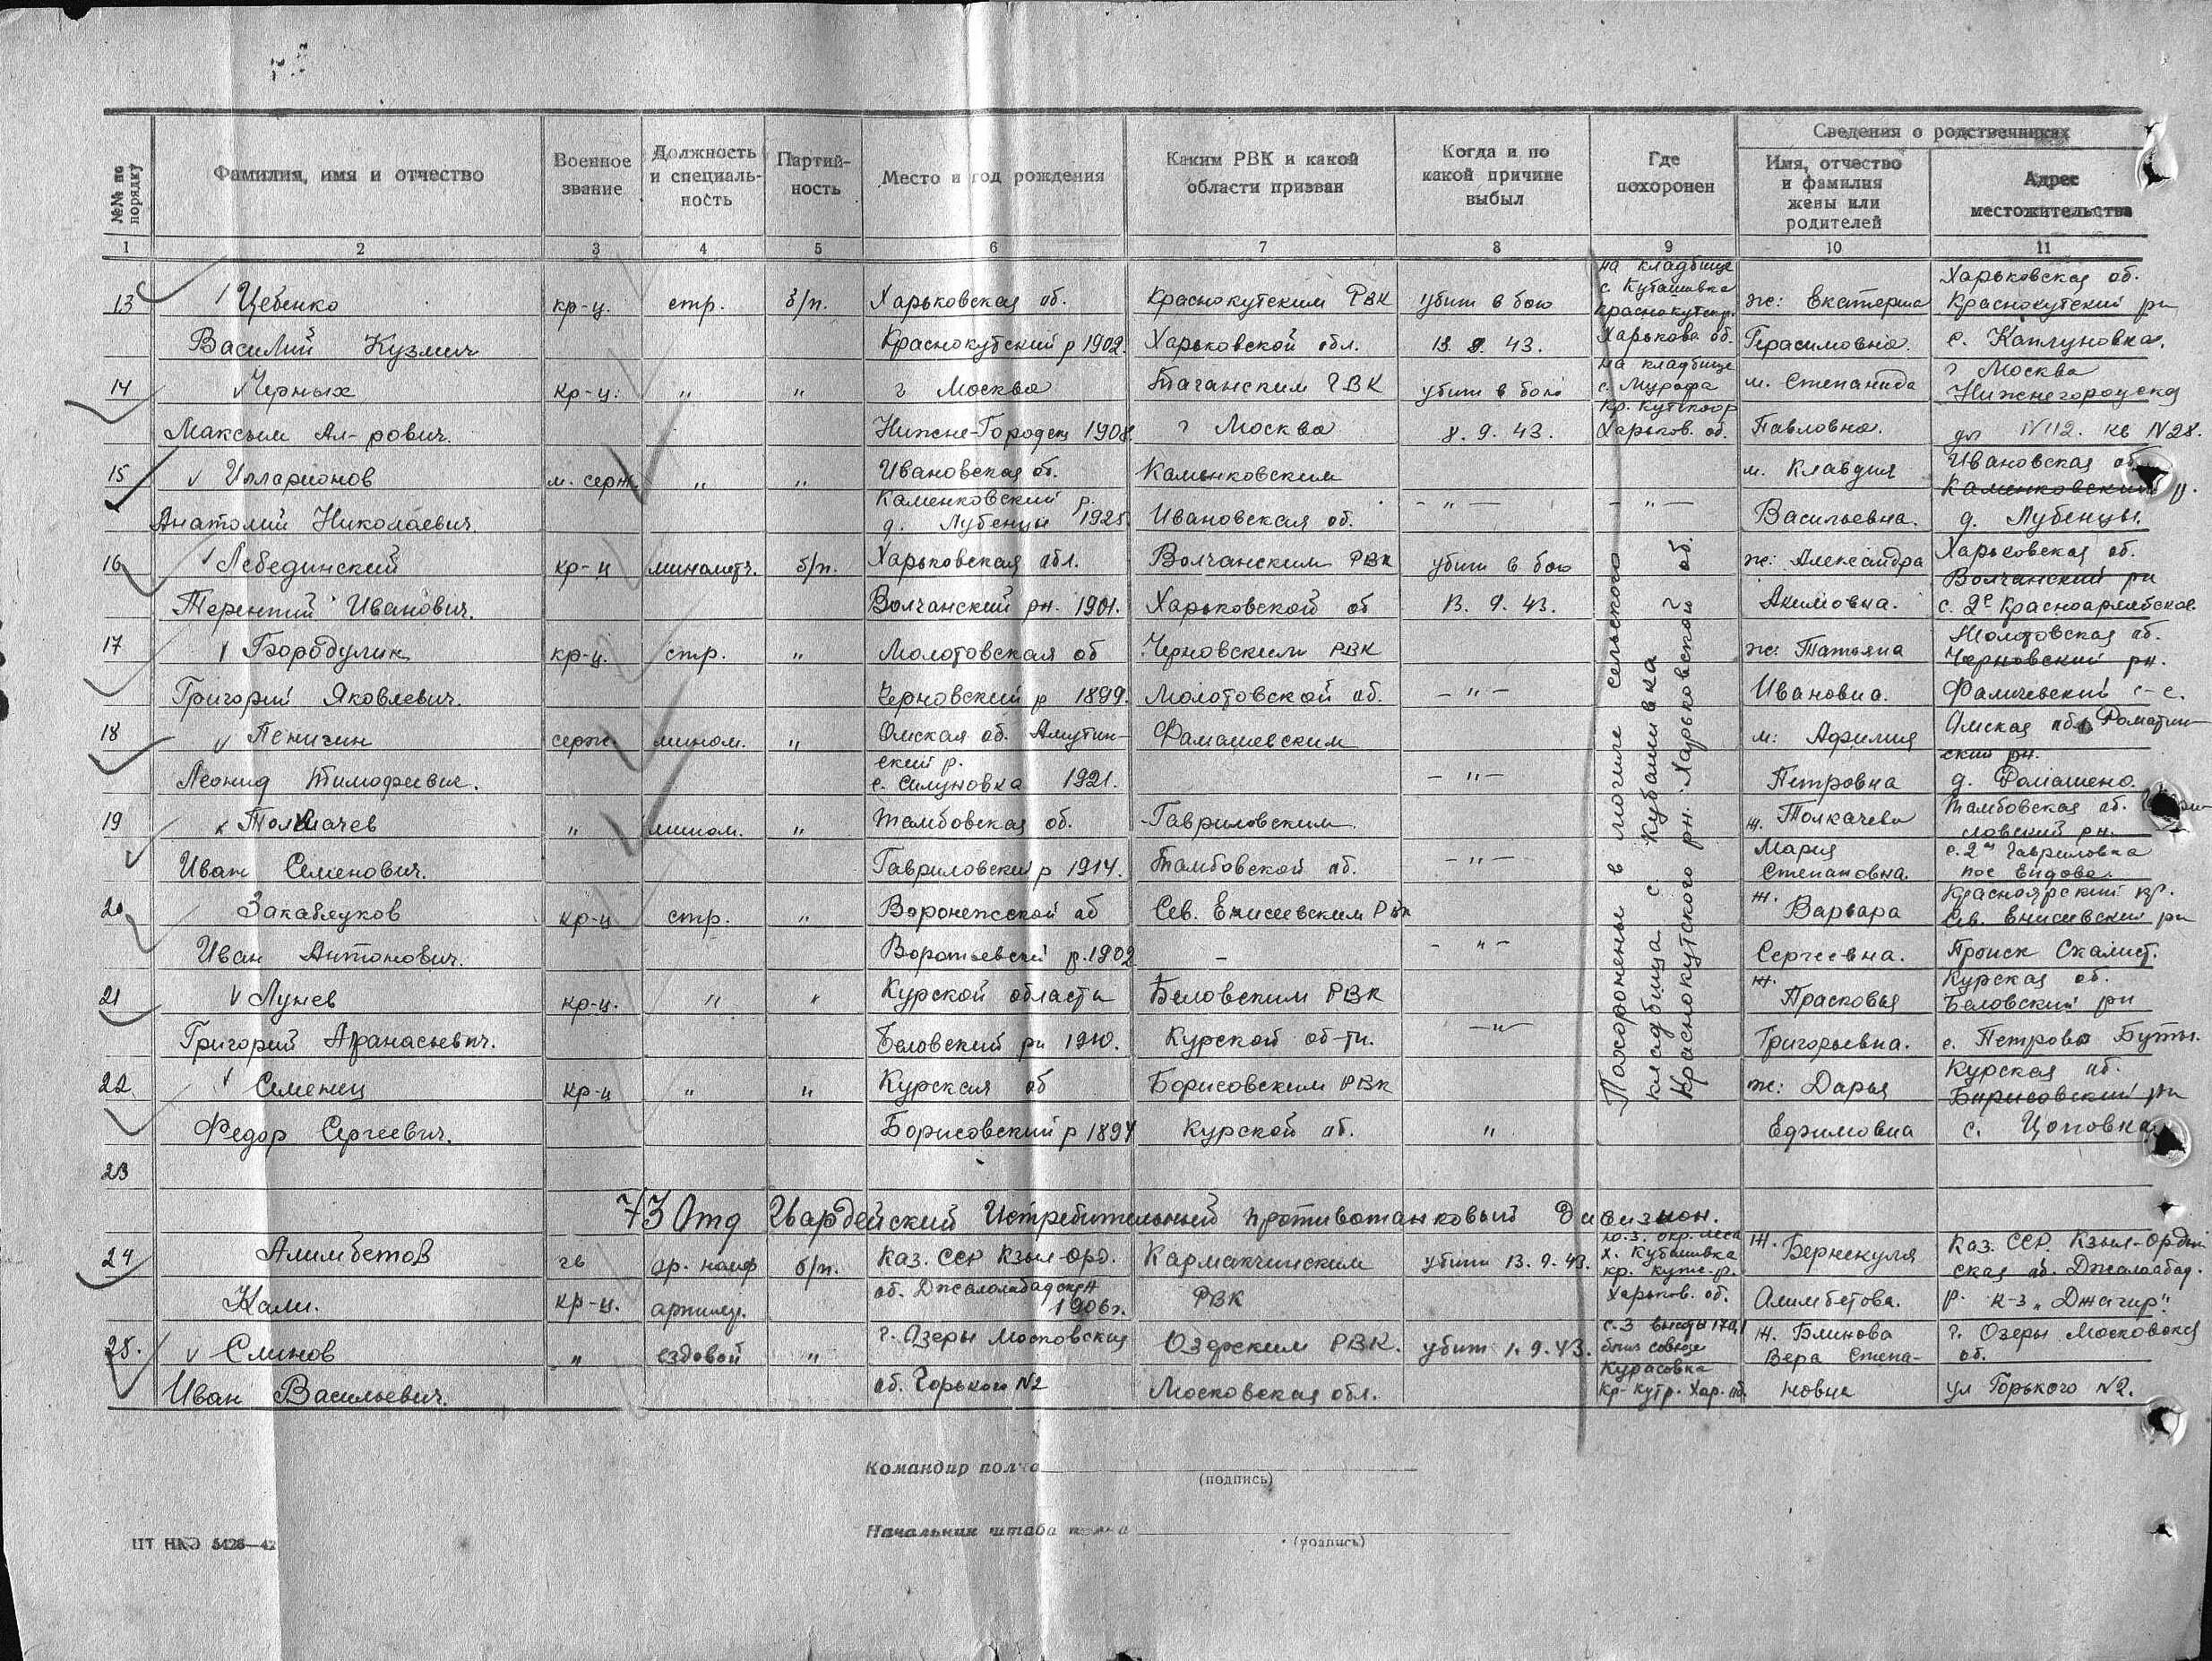 Сведения о родственниках
№№ по порядку
Фамилия, имя и отчество
Военное звание
Должность и специальность
Партийность
Место и год рождения
Каким РВК и какой области призван
Когда и по какой причине выбыл
Где похоронен
Имя, отчество и фамилия жены или родителей
Адрес местожительства
1 2 3 4 5 6 7 8 9 10 11
13 Цебенко кр-ц. стр. б/п. Харьковская об. Краснокутским РВК убит в бою на кладбище с. Кубашивка Краснокутск р. ж: Екатерина Харьковская об. Краснокутский рн
Василий Кузмич Краснокутский р 1902. Харьковской обл. 13. 9. 43. Харьков. об. Герасимовна. с. Каплуновка.
14 Черных кр-ц. " " г Москва Таганским РВК убит в бою на кладбище с. Мурафа м. Степанида г Москва Нижнегородская
Максим Ал-рович. Нижне-Городск 1908 г Москва 8. 9. 43. Кр. Кутског р Харьков. об. Павловна. дл N112. кв N28.
15 Илларионов м. серж " " Ивановская об. Каменковским м. Клавдия Ивановская об.
Анатолий Николаевич. Каменковский р. д. Лубенцы 1925 Ивановская об. - " - - " - Васильевна. Каменковский р. д. Лубенцы.
16 Лебединский кр-ц минометч. б/п. Харьковская обл. Волчанским РВК убит в бою ж: Александра Харьковская об. Волчанский рн
Терентий Иванович. Волчанский рн. 1901. Харьковской об 13. 9. 43. Акимовна. с. 2е Красноармейское
17 Бородулин кр-ц. стр. " Молотовская об Черновским РВК ж: Татьяна Молотовская об. Черновский рн.
Григорий Яковлевич. Черновский р 1899. Молотовской об. - " - Ивановна. с-с.
18 Пенизин серж. мином. " Омская об. Амутин- м: Омская обл
Леонид Тимофеевич. ский р. 1921. - " - Петровна ский рн. д.
19 Толкачев " мином. " Тамбовская об. Гавриловским ж. Толкачева Тамбовская об. ловский рн.
Иван Семенович. Гавриловский р 1914. Тамбовской об. - " - Мария Степановна. с. 2ая Гавриловка пос
20 Закаблуков кр-ц стр. " Воронежской об Сев. Енисеевским РВК ж. Варвара Красноярский кр. Сев. Енисевский рн
Иван Антонович. р. 1902 - - " - Сергеевна. Приск Скалист.
21 Лунев кр-ц. " " Курской области Беловским РВК ж. Прасковья Курская об. Беловский рн
Григорий Афанасьевич. Беловский рн 1910. Курской об-ти. - " - Григорьевна. с. Петрово Буты.
22 Семенец кр-ц " " Курская об Борисовским РВК ж: Дарья Курская об. Борисовский рн
Федор Сергеевич. Борисовский р 1894 Курской об. " Ефимовна с. Цоповка
Похоронены в могиле сельского
кладбища с. Кубашивка
Краснокутского рн. Харьковской об.
23
73 Отд Гвардейский Истребительный противотанковый Дивизион.
24 Алимбетов гв ор. номер б/п. Каз. ССР Кзыл-Орд. Кармакчинским убит 13. 9. 43. ю.-з. окр. леса х. Кубашивка кр. кутс-р. ж. Бернекуля Каз. ССР. Кзыл-Ордын
Кали. кр-ц. артилер. об. 1906г. РВК Харьков. об. Алимбетова. ская об. р. к-з „Джагир".
25. Слинов " ездовой " г. Озеры Московская Озерским РВК. убит 1. 9. 43. ж. Блинова Вера Степа- г. Озеры Московская об.
Иван Васильевич. об. Горького N2 Московская обл. Курасовка Кр-кут р. Хар. об. новна ул Горького N2.
Командир полка
(подпись)
Начальник штаба полка
(подпись)
ЦТ НКО 5426—42